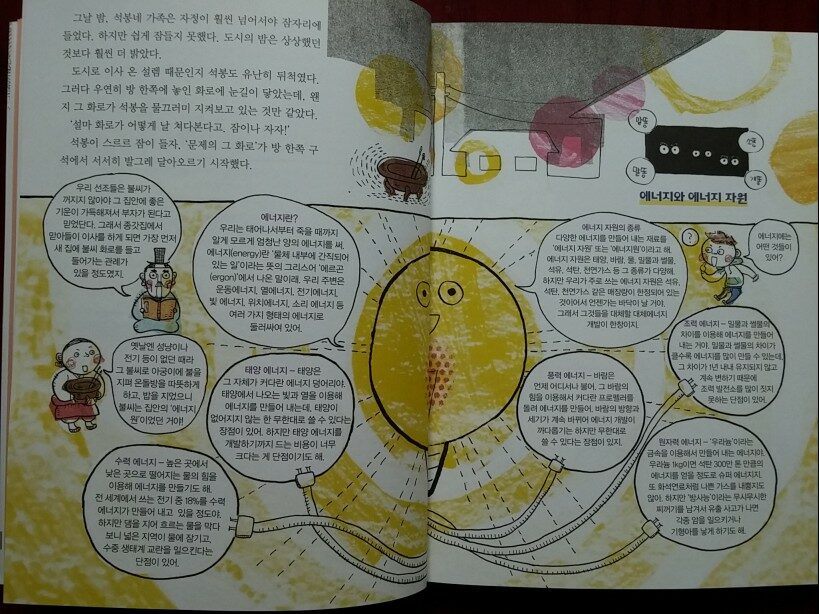 그날 밤, 석봉네 가족은 자정이 훨씬 넘어서야 잠자리에
들었다. 하지만 쉽게 잠들지 못했다. 도시의 밤은 상상했던
것보다 훨씬 더 밝았다.
도시로 이사 온 설렘 때문인지 석봉도 유난히 뒤척였다.
그러다 우연히 방 한쪽에 놓인 화로에 눈길이 닿았는데, 왠
지 그 화로가 석봉을 물끄러미 지켜보고 있는 것만 같았다.
'설마 화로가 어떻게 날 쳐다본다고. 잠이나 자자!'
석봉이 스르르 잠이 들자, '문제의 그 화로'가 방 한쪽 구
석에서 서서히 발그레 달아오르기 시작했다.
우리 선조들은 불씨가
꺼지지 않아야 그 집안에 좋은
기운이 가득해져서 부자가 된다고
믿었단다. 그래서 종갓집에서
맏아들이 이사를 하게 되면 가장 먼저
새 집에 불씨 화로를 들고
들어가는 관례가
있을 정도였지.
옛날엔 성냥이나
전기 등이 없던 때라
그 불씨로 아궁이에 불을
지펴 온돌방을 따뜻하게
하고, 밥을 지었으니
불씨는 집안의 '에너지
원'이었던 거야!
에너지란?
우리는 태어나서부터 죽을 때까지
알게 모르게 엄청난 양의 에너지를 써.
에너지(energy)란 '물체 내부에 간직되어
있는 일'이라는 뜻의 그리스어 '에르곤
(ergon)'에서 나온 말이래. 우리 주변은
운동에너지, 열에너지, 전기에너지,
빛 에너지, 위치에너지, 소리 에너지 등
여러 가지 형태의 에너지로
둘러싸여 있어.
태양 에너지 – 태양은
그 자체가 커다란 에너지 덩어리야.
태양에서 나오는 빛과 열을 이용해
에너지를 만들어 내는데, 태양이
없어지지 않는 한 무한대로 쓸 수 있다는
장점이 있어. 하지만 태양 에너지를
개발하기까지 드는 비용이 너무
크다는 게 단점이기도 해.
수력 에너지 – 높은 곳에서
낮은 곳으로 떨어지는 물의 힘을
이용해 에너지를 만들기도 해.
전 세계에서 쓰는 전기 중 18%를 수력
에너지가 만들어 내고 있을 정도야.
하지만 댐을 지어 흐르는 물을 막다
보니 넓은 지역이 물에 잠기고,
수중 생태계 교란을 일으킨다는
단점이 있어.
말똥
석탄
말똥
개똥
에너지와 에너지 자원
에너지 자원의 종류
다양한 에너지를 만들어 내는 재료를
'에너지 자원' 또는 '에너지원'이라고 해.
에너지 자원은 태양, 바람, 물, 밀물과 썰물,
석유, 석탄, 천연가스 등 그 종류가 다양해.
하지만 우리가 주로 쓰는 에너지 자원은 석유,
석탄, 천연가스 같은 매장량이 한정되어 있는
것이어서 언젠가는 바닥이 날 거야.
그래서 그것들을 대체할 대체에너지
개발이 한창이지.
?
에너지에는
어떤 것들이
있어?
조력 에너지 – 밀물과 썰물의
차이를 이용해 에너지를 만들어
내는 거야. 밀물과 썰물의 차이가
클수록 에너지를 많이 만들 수 있는데,
그 차이가 1년 내내 유지되지 않고
계속 변하기 때문에
조력 발전소를 많이 짓지
못하는 단점이 있어.
풍력 에너지 – 바람은
언제 어디서나 불어. 그 바람의
힘을 이용해서 커다란 프로펠러를
돌려 에너지를 만들어. 바람의 방향과
세기가 계속 바뀌어 에너지 개발이
까다롭기는 하지만 무한대로
쓸 수 있다는 장점이 있지.
원자력 에너지 – '우라늄'이라는
금속을 이용해서 만들어 내는 에너지야.
우라늄 1kg이면 석탄 300만 톤 만큼의
에너지를 얻을 정도로 슈퍼 에너지지.
또 화석연료처럼 나쁜 가스를 내뿜지도
않아. 하지만 '방사능'이라는 무시무시한
찌꺼기를 남겨서 유출 사고가 나면
각종 암을 일으키거나
기형아를 낳게 하기도 해.